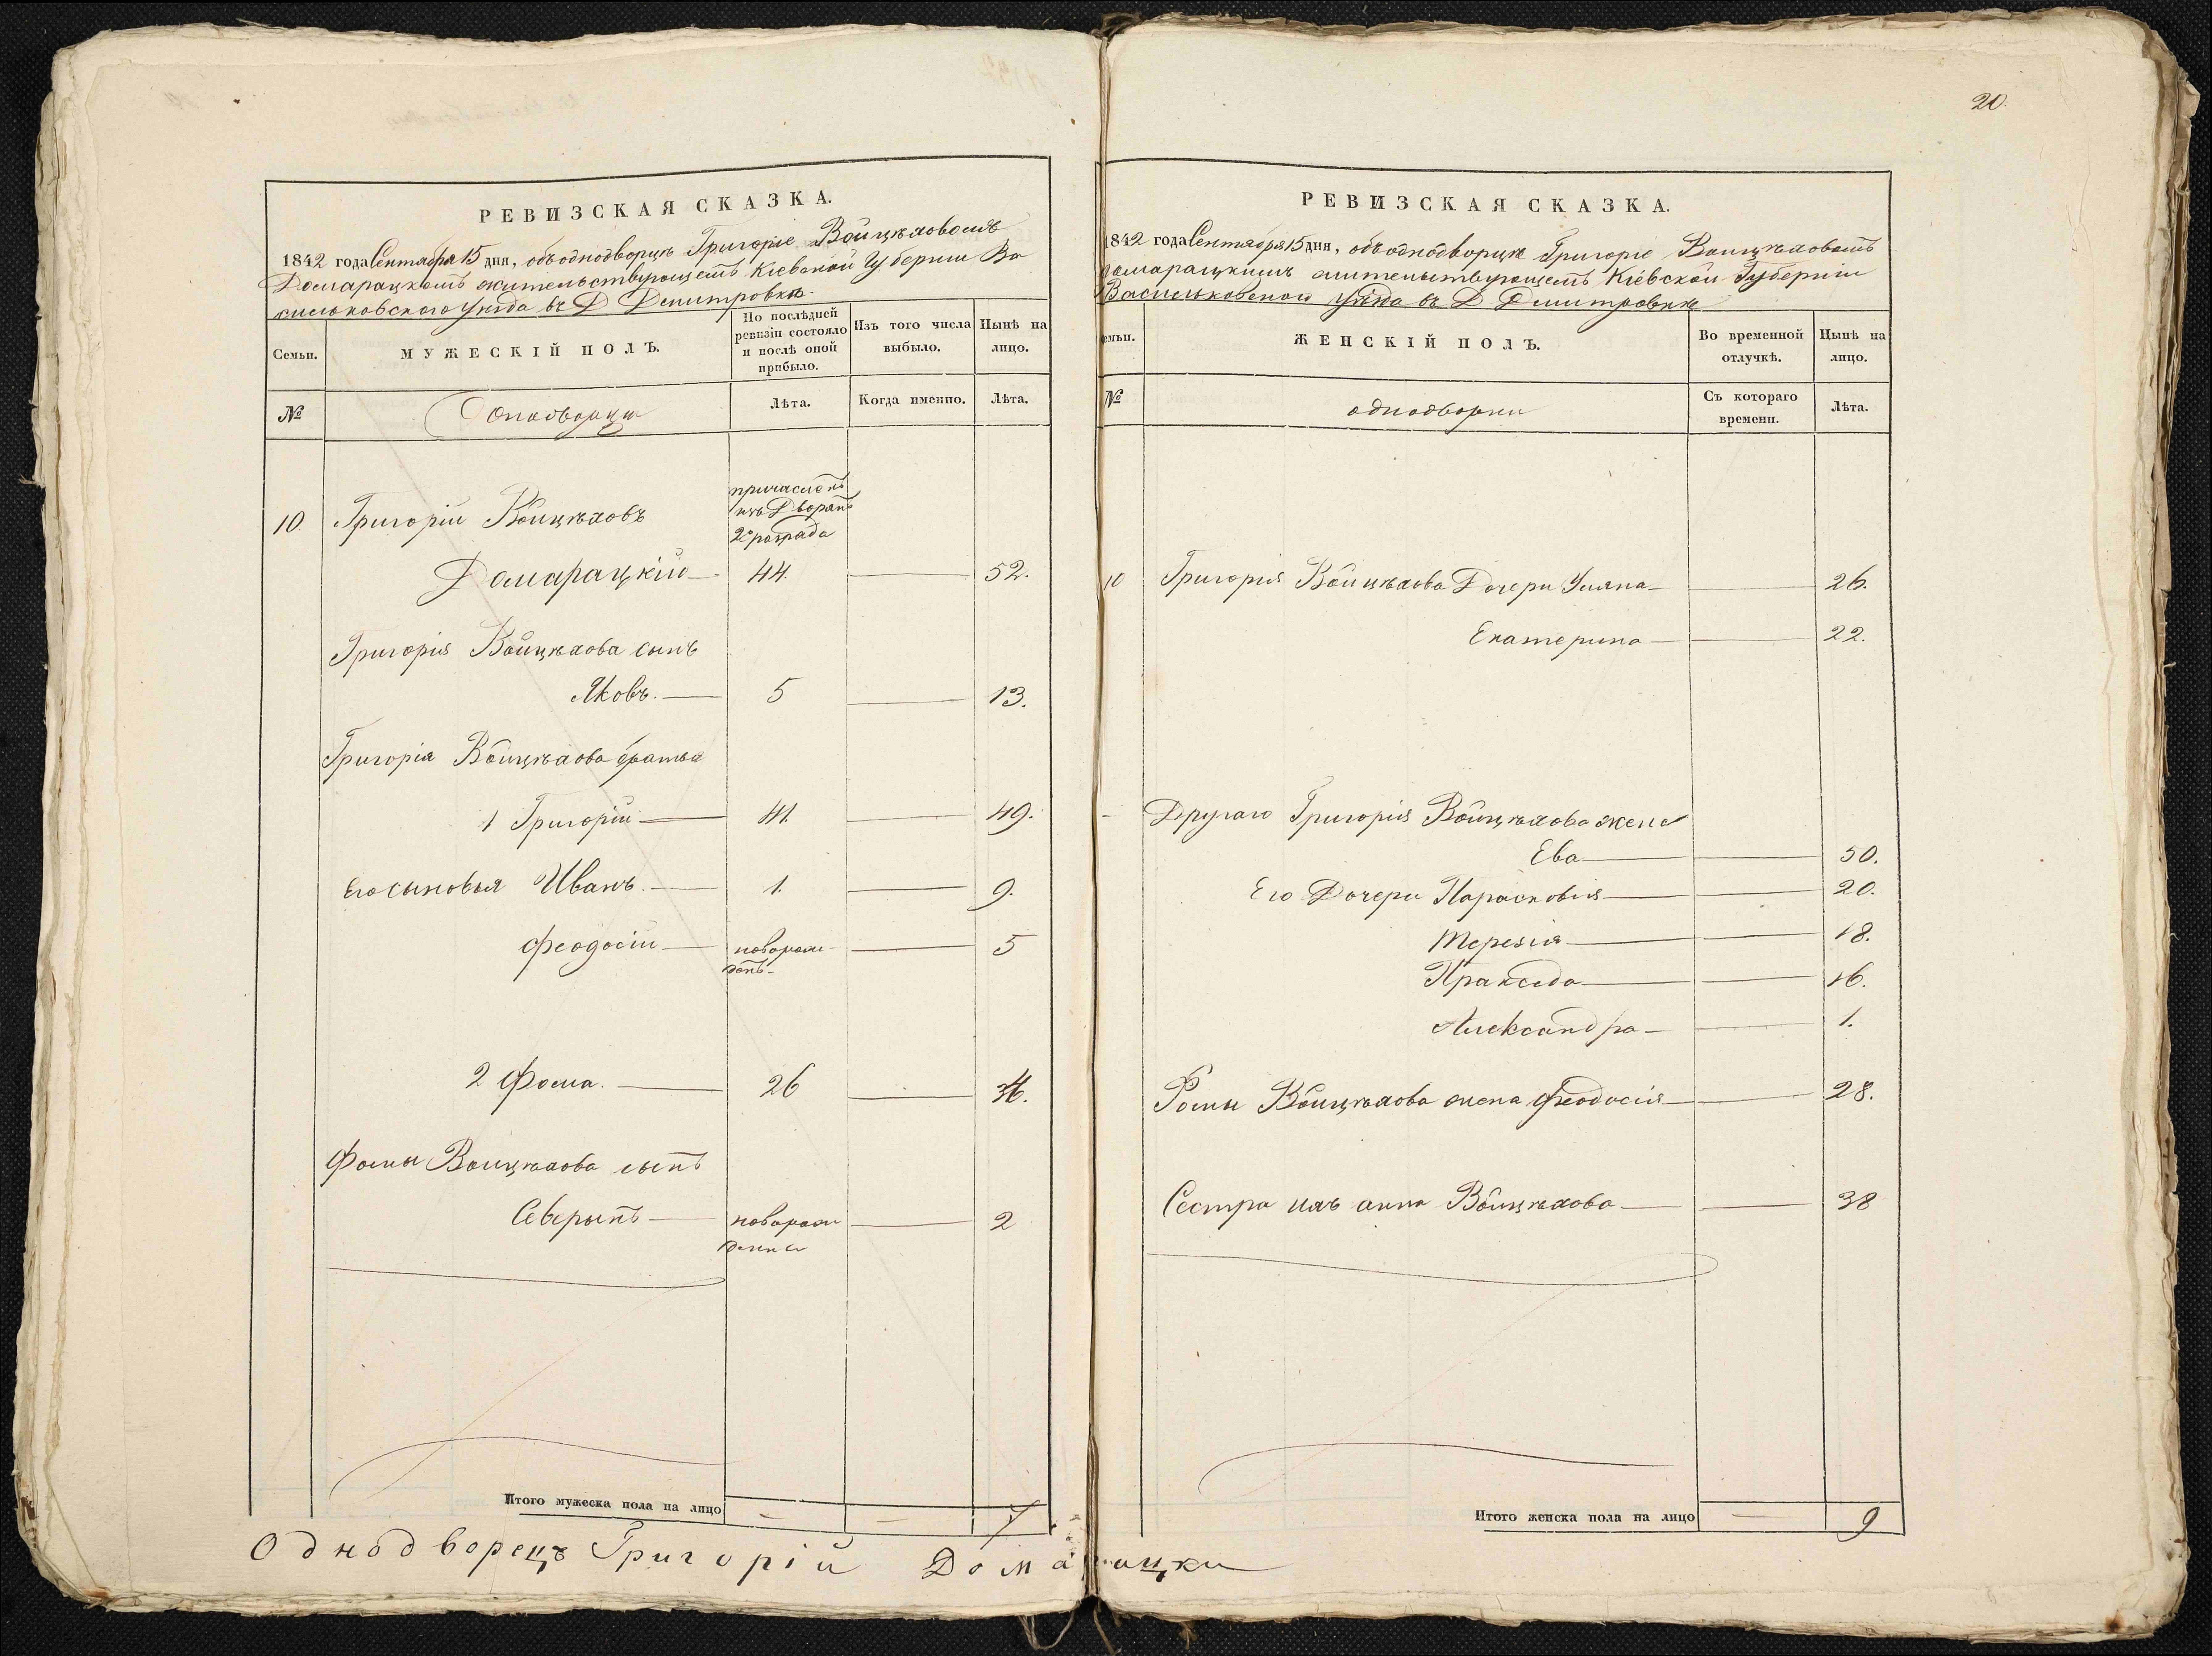 20.
РЕВИЗСКАЯ СКАЗКА.
1842 года Сентября 15 дня, объ однодворцѣ Григоріе Войцѣховомъ
Домарацкомъ жительствующемъ Кіевской Губерніи Ва
сильковскаго Уѣзда въ Д Дмитровкѣ.
Семьи.
МУЖЕСКІЙ ПОЛЪ.
По послѣдней ревизіи состояло и послѣ оной прибыло.
Изъ того числа выбыло.
Нынѣ на лицо.
№
Однодворцы
Лѣта.
Когда именно.
Лѣта.
причисленъ
изъ Дворянъ
2го розряда
10. Григорій Войцѣховъ
Домарацкій 44. 52.
Григорія Войцѣхова сынъ
Яковъ. 5 13.
Григорія Войцѣхова братья
1 Григорій 41. 49.
Его сыновья Иванъ. 1. 9.
Феодосій новорож 5
денъ
2 Фома. 26 34.
Фомы Войцѣхова сынъ
Северынъ новорож 2
денны
Итого мужеска пола на лицо 7
РЕВИЗСКАЯ СКАЗКА.
1842 года Сентября 15 дня, объ однодворцѣ Григоріе Войцѣховомъ
Домарацкимъ жительствующемъ Кіевской Губерніи
Васильковскаго Уѣзда въ Д Дмитровкѣ
емьи.
ЖЕНСКІЙ ПОЛЪ.
Во временной отлучкѣ.
Нынѣ на лицо.
№
однодворки
Съ котораго времени.
Лѣта.
10 Григорія Войцѣхова Дочери Уляна 26.
Екатерина 22.
Другаго Григорія Войцѣхова жена
Ева 50.
Его Дочери Парасковія 20.
Терезія 18.
Пракседа 16.
Александра 1.
Фомы Войцѣхова жена Феодосія 28.
Сестра ихъ анна Войцѣхова 38
Итого женска пола на лицо 9
Однодворецъ Григорій Домарацки